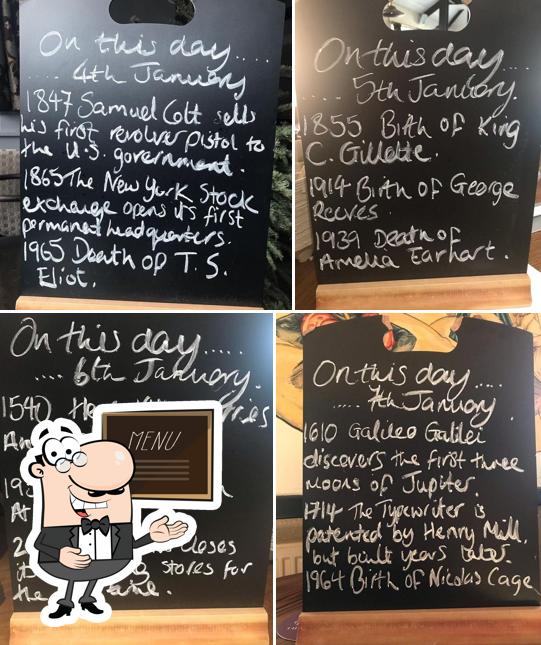 On this day.....
..... 4th January
1847 Samuel Colt sells
his first revolver pistol to
the U.S. government.
1865 The New York Stock
exchange opens it's first
permanent headquarters.
1965 Death of T. S.
Eliot.
On this day....
..... 5th January.
1855 Birth of King
C. Gillette.
1914 Birth of George
Reeves.
1939 Death of
Amelia Earhart.
On this day.....
.... 6th January.
1540
MENU
closes
stores for
the
On this day....
..... 7th January.
1610 Galileo Galilei
discovers the first three
moons of Jupiter.
1714 The Typewriter is
patented by Henry Mill,
but built years later.
1964 Birth of Nicolas Cage